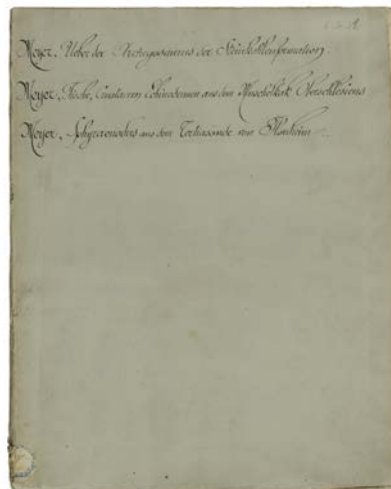 Meyer. Ueber den Archegosaurus der Steinkohlenformation.
Meyer, Fische, Crustaceen Echinodermen aus dem Muschelkalk Oberschlesiens
Meyer, Sphyraenodus aus dem Tertiärsande von Flonheim